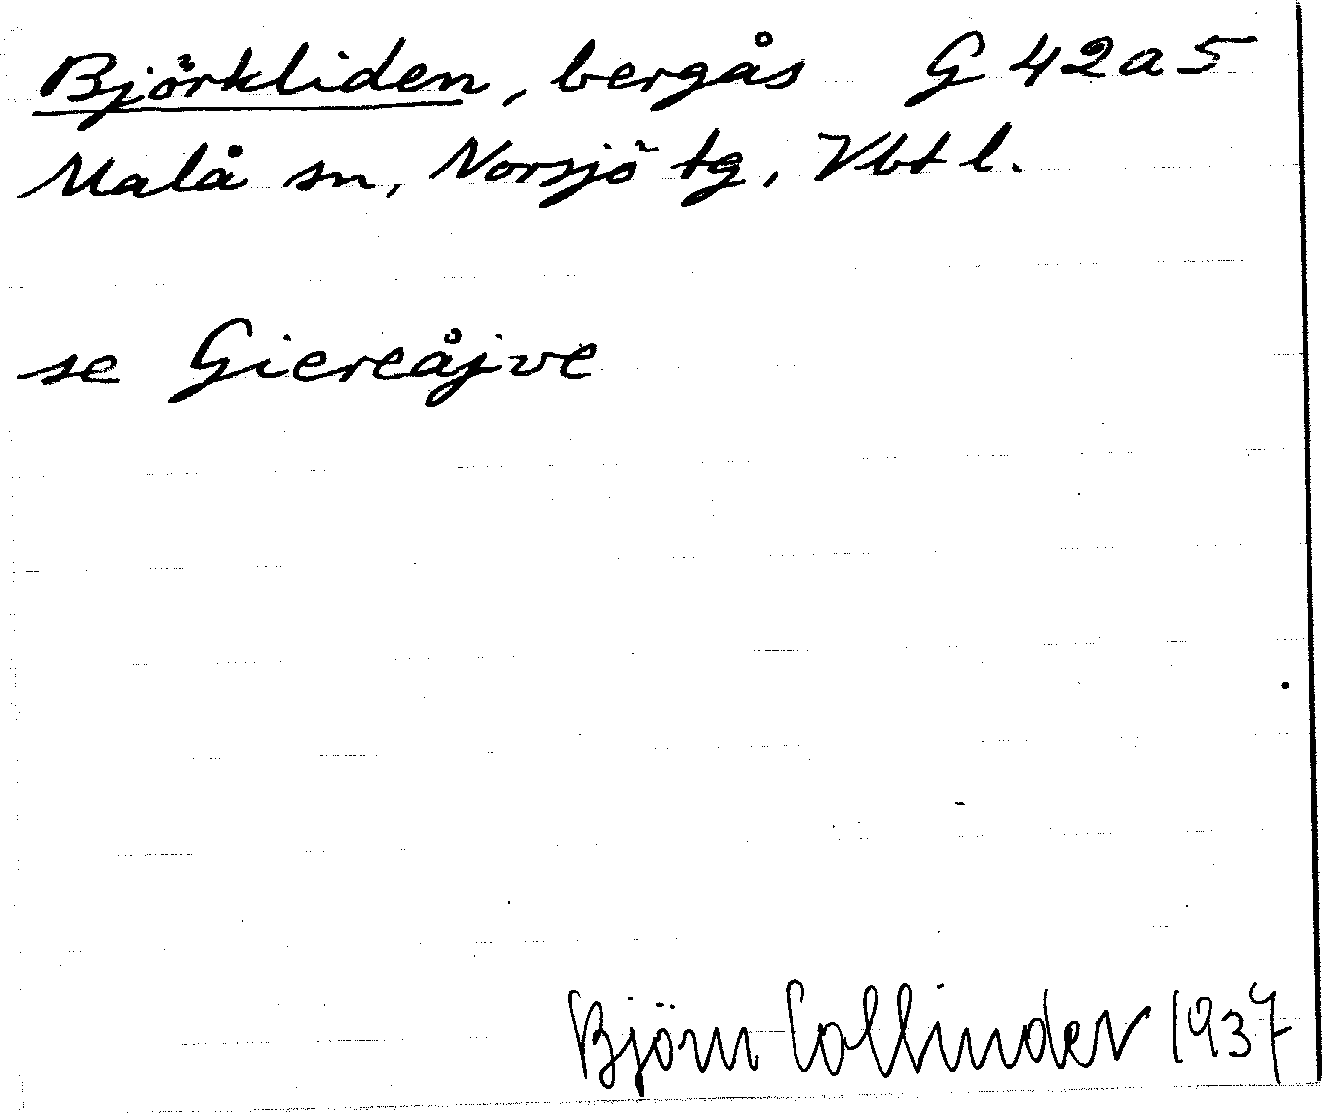 Björkliden, bergås G 42a5
Malå sn, Norsjö tg, Vbt l.
se Giereåjve
Björn Collinder 1937